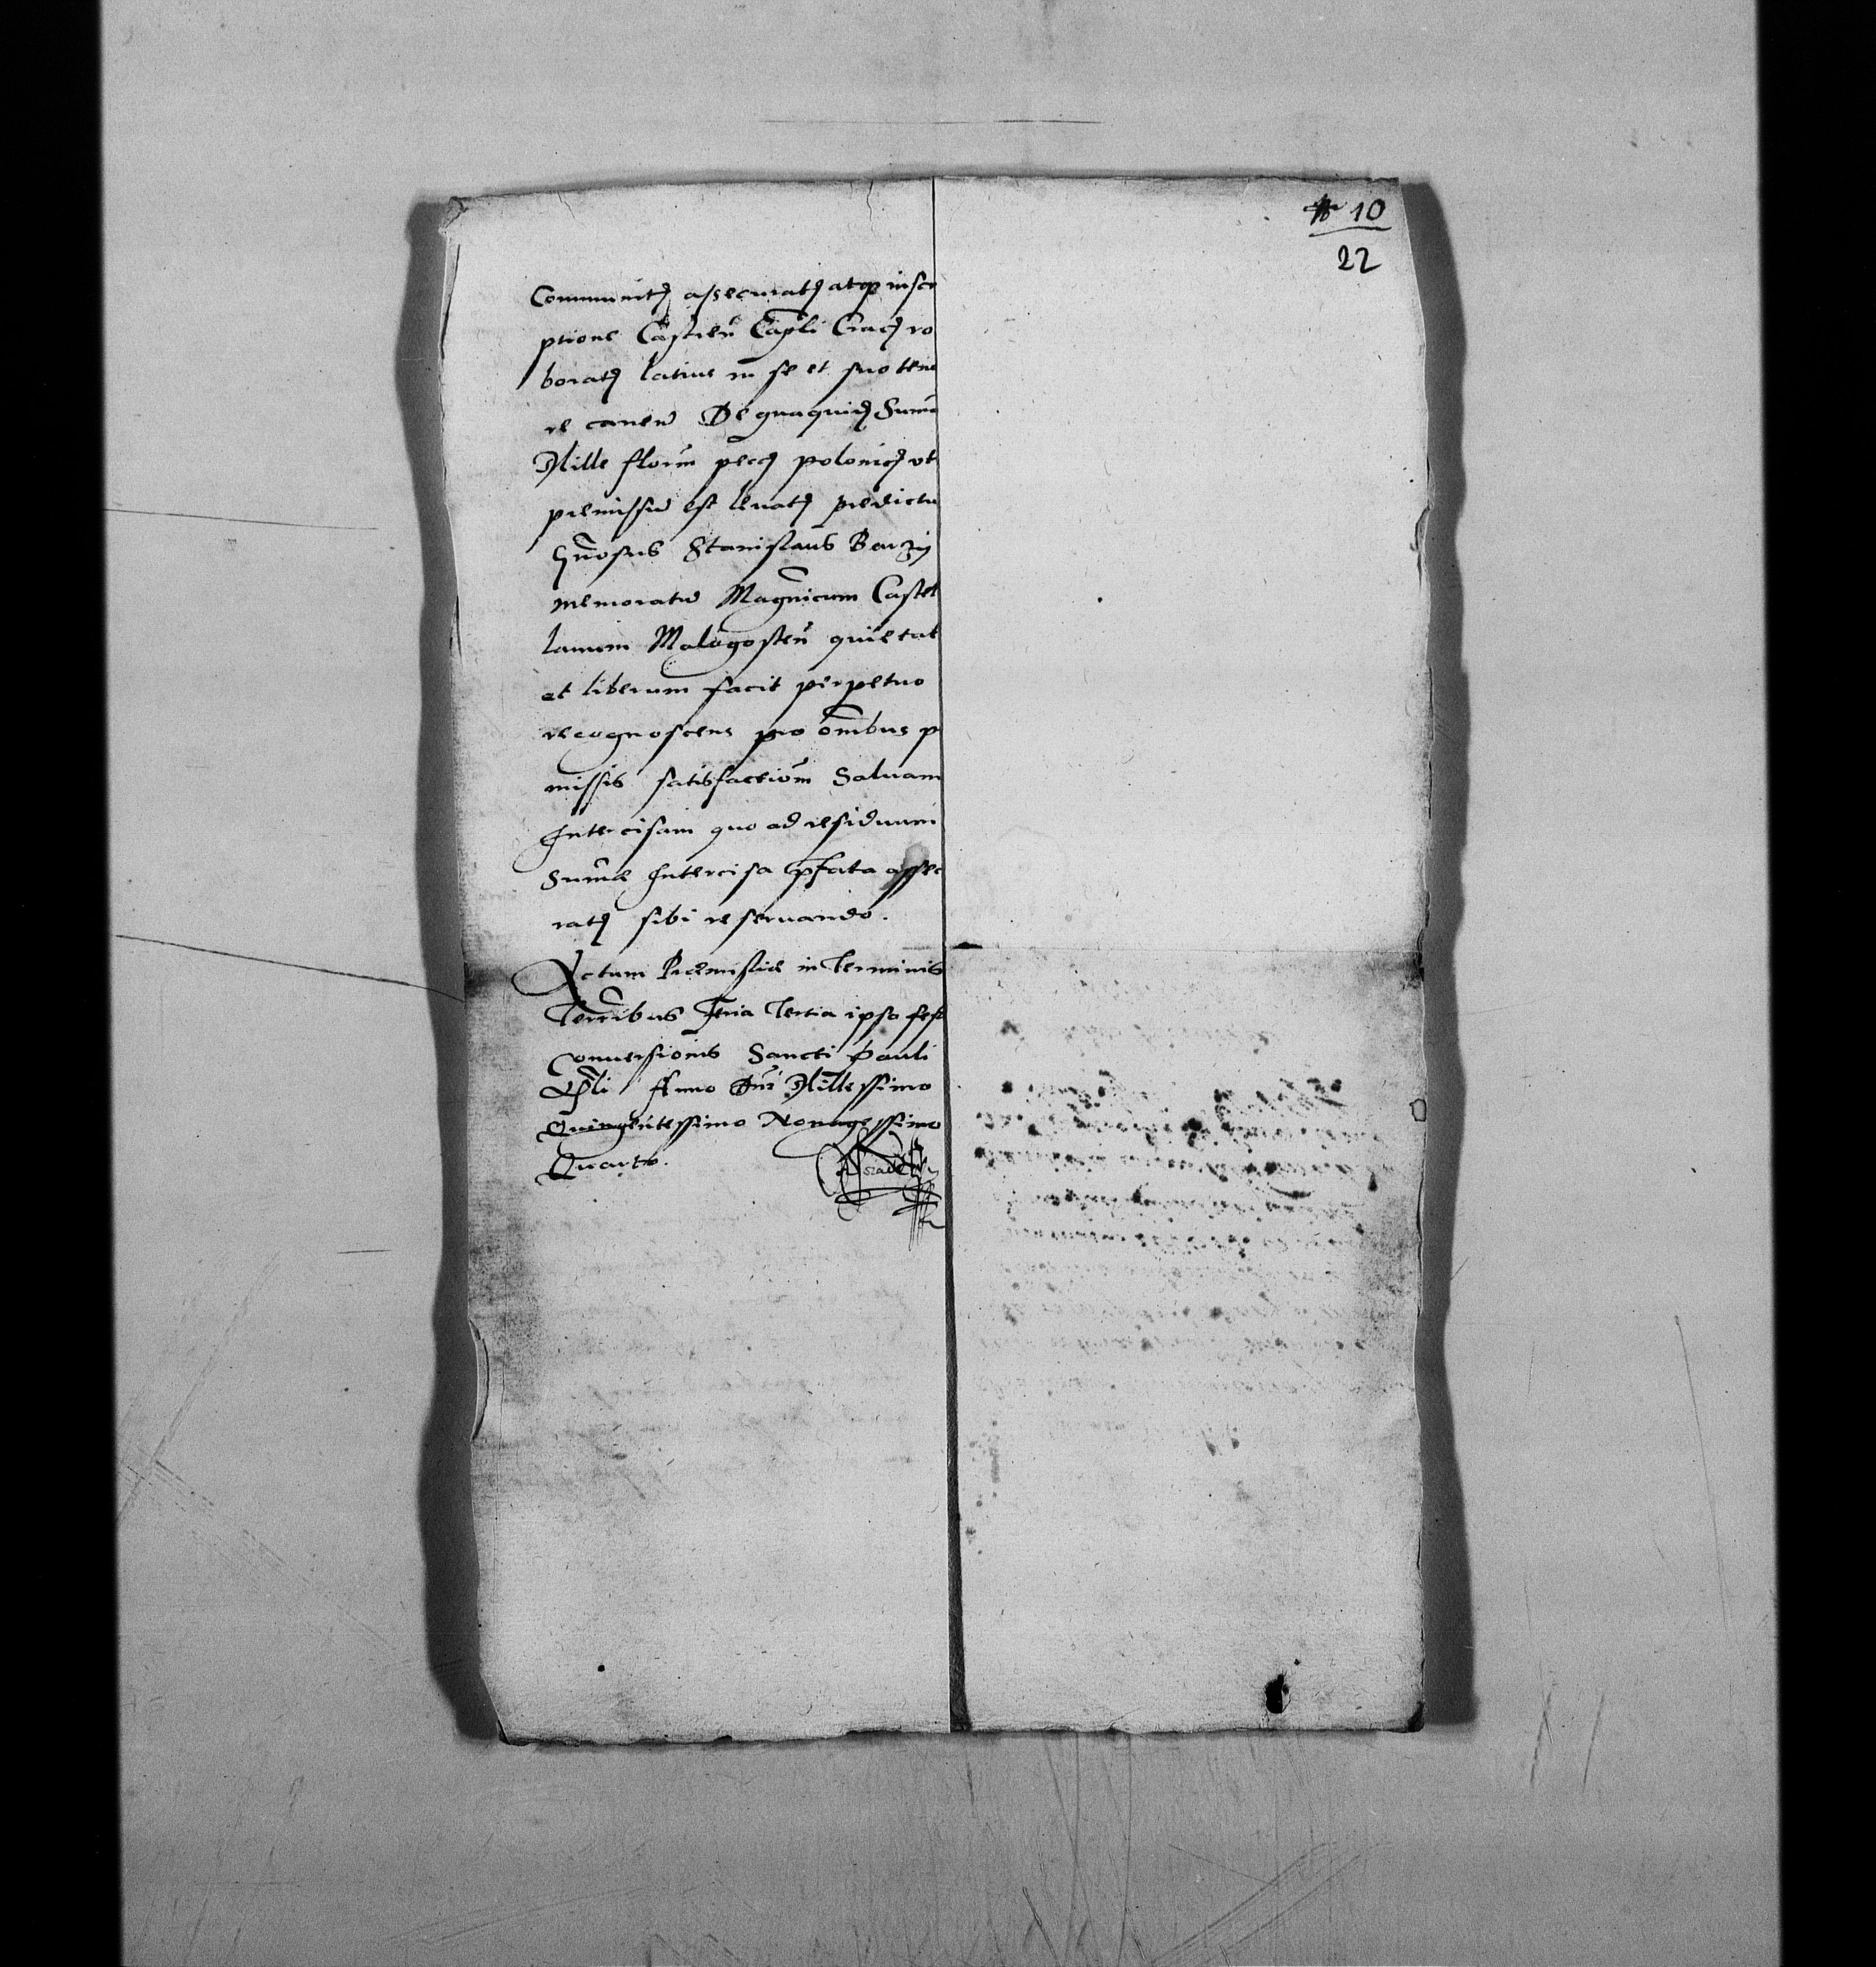 10
22
Communitꝫ assecuratꝫ atqꝫ inscr
ptione Castren̄ Cap̄li Cracꝫ ro
boratꝫ latius in se et suo teno
re canen̄ De quaquidꝫ Sum̄a
Mille florm̄ pecꝫ polonicꝫ ut
premissū est levatꝫ predictu
Gn̄osus Stanislaus
memoratū Magn̄icum Castel
lanum Malogosten̄ quietat
et liberum facit perpetuo
recognoscens pro om̄ibus p
missis satisfactiom̄ Salvam
Intercisam quo ad residuum
Sum̄æ Intercisa p̄fata assec
ratꝫ sibi reservando.
Actum Præmisliæ in Terminis
Terr̄ibus Feria Tertia ipso fest
Conversionis Sancti Pauli
Ap̄li Anno Dn̄i Millessimo
Quingentessimo Nonagessimo
Quarto.